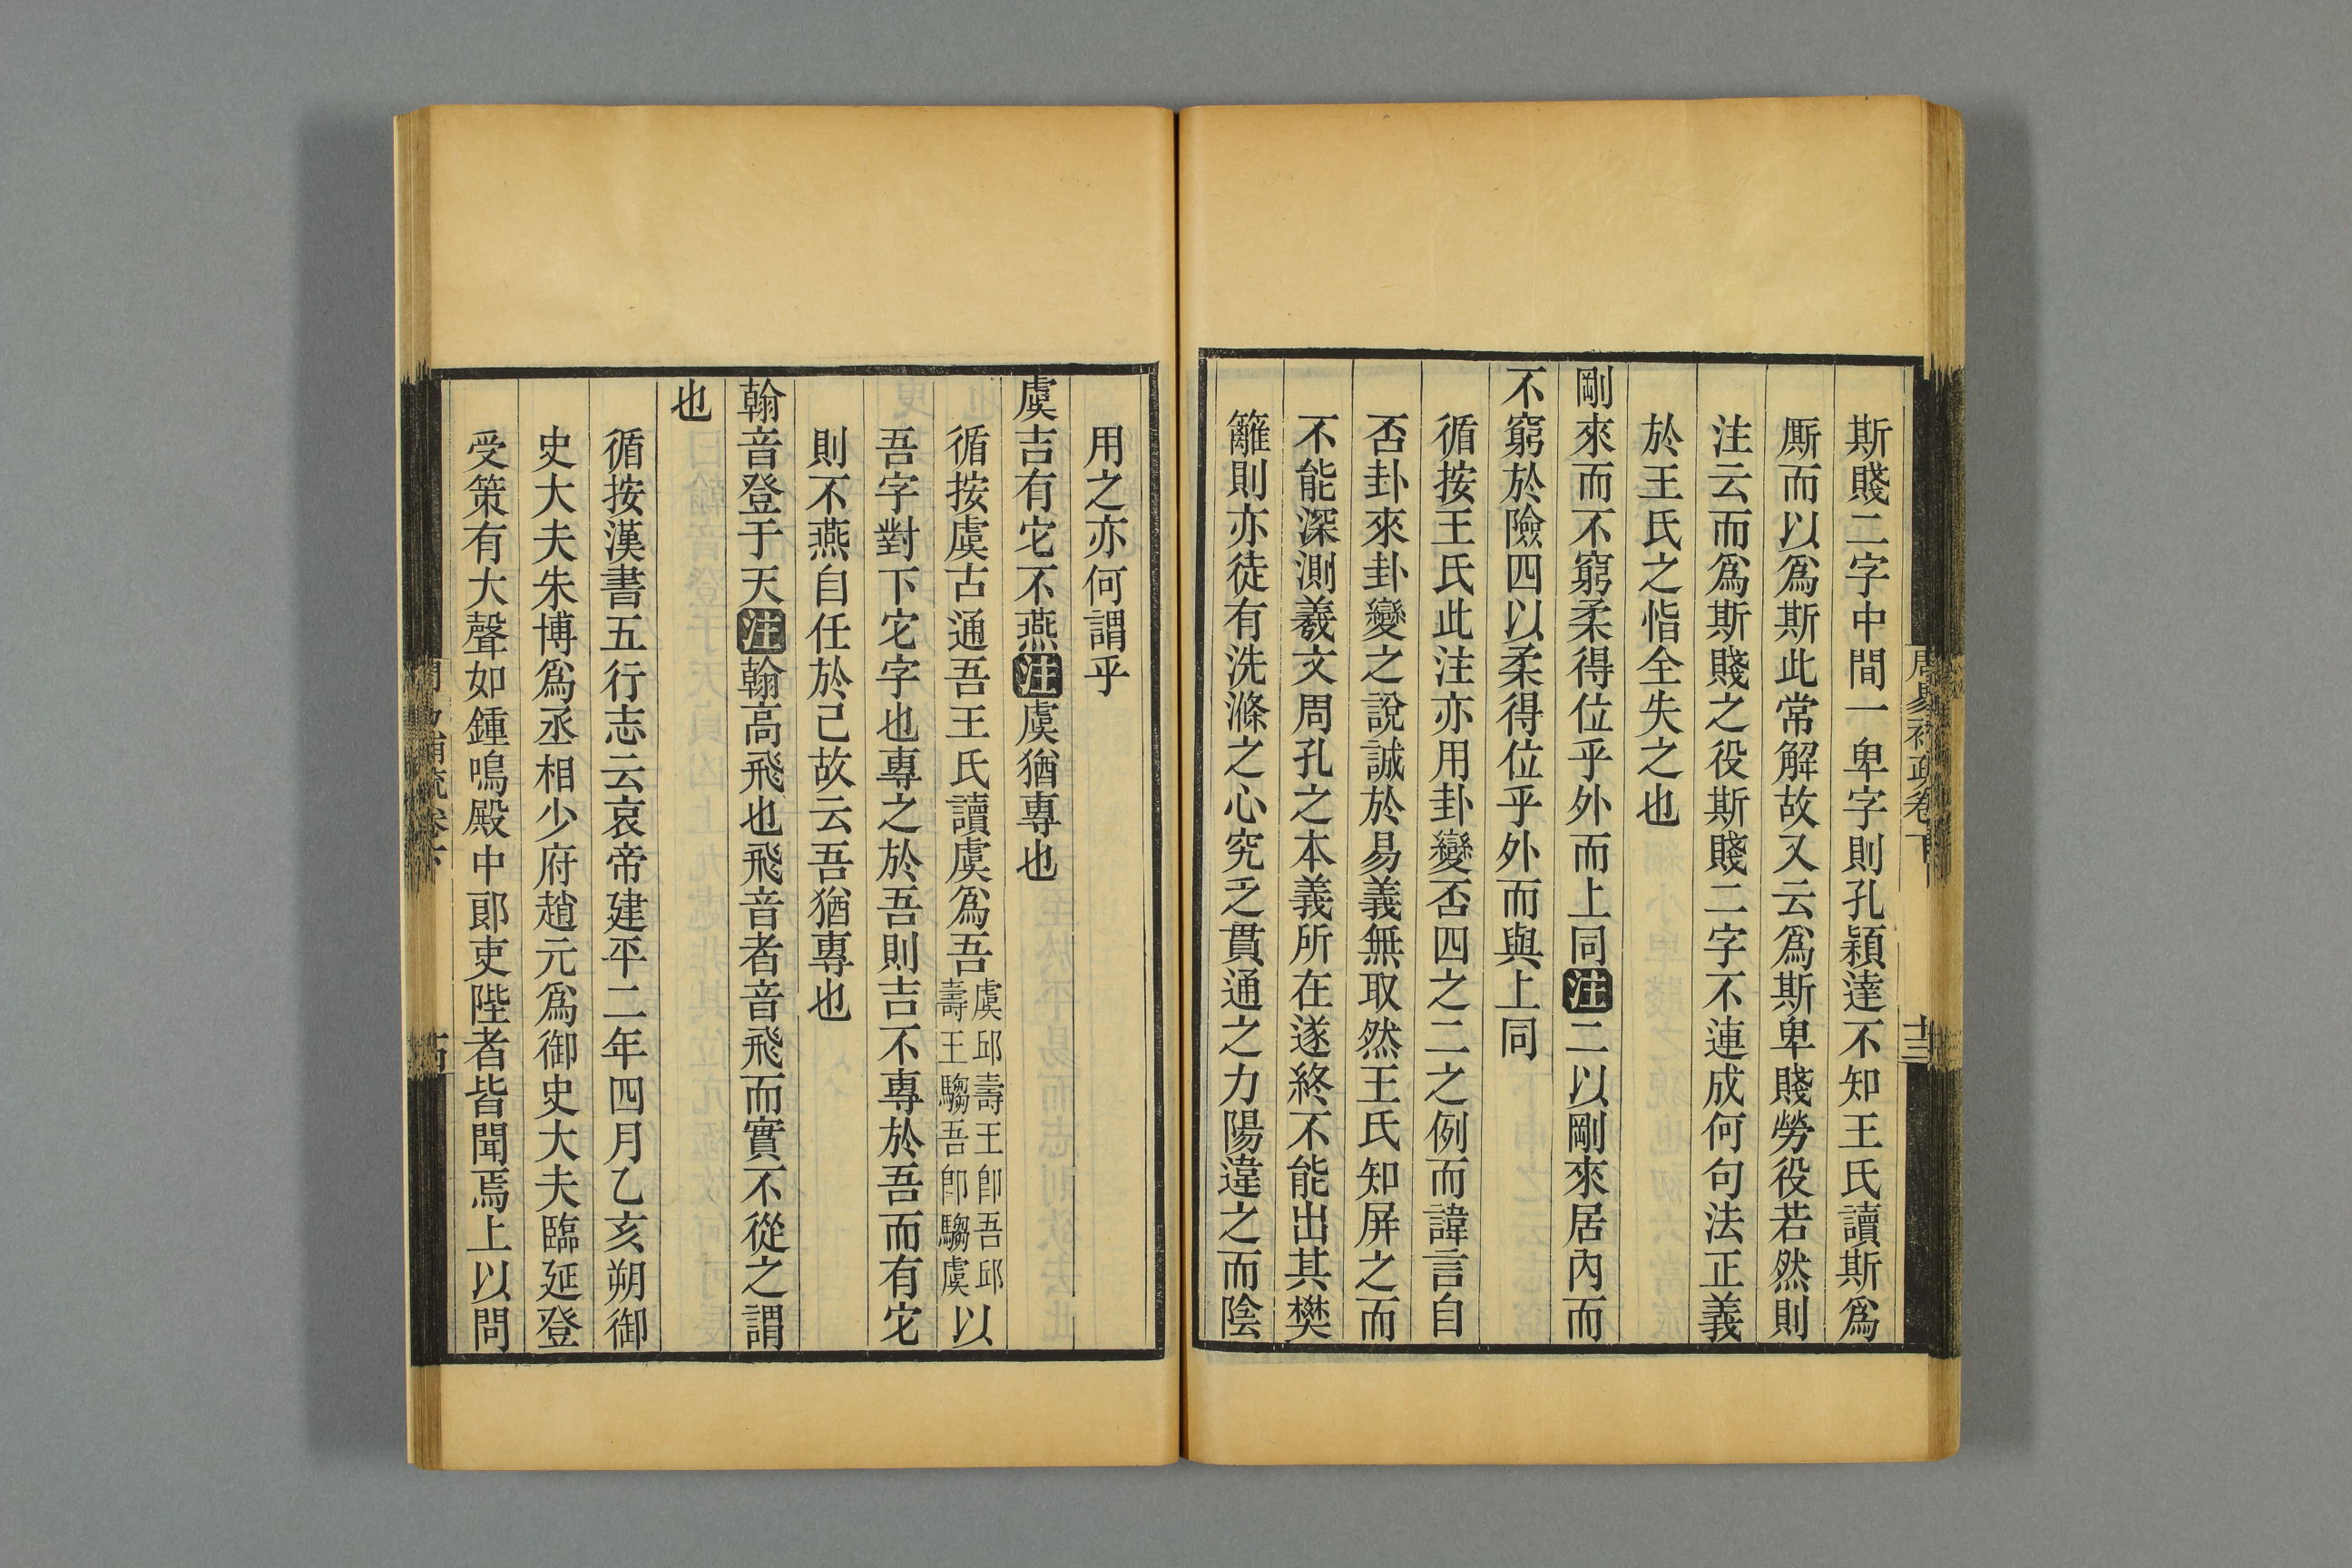 周易補疏卷下
斯賤二字中間一卑字則孔穎達不知王氏讀斯爲
厮而以爲斯此常解故又云爲斯卑賤勞役若然則
注云而爲斯賤之役斯賤二字不連成何句法正義
於王氏之恉全失之也
剛來而不窮柔得位乎外而上同注二以剛來居內而
不窮於險四以柔得位乎外而與上同
循按王氏此注亦用卦變否四之二之例而諱言自
否卦來卦變之說誠於易義無取然王氏知屏之而
不能深測羲文周孔之本義所在遂終不能出其樊
籬則亦徒有洗滌之心究乏貫通之力陽違之而陰
用之亦何謂乎
虞吉有它不燕注虞猶專也
循按虞古通吾王氏讀虞爲吾虞邱壽王卽吾邱壽王騶吾卽騶虞以
吾字對下它字也專之於吾則吉不專於吾而有它
則不燕自任於己故云吾猶專也
翰音登于天注翰高飛也飛音者音飛而實不從之謂
也
循按漢書五行志云哀帝建平二年四月乙亥朔御
史大夫朱博爲丞相少府趙元爲御史大夫臨延登
受策有大聲如鍾鳴殿中郎吏陛者皆聞焉上以問